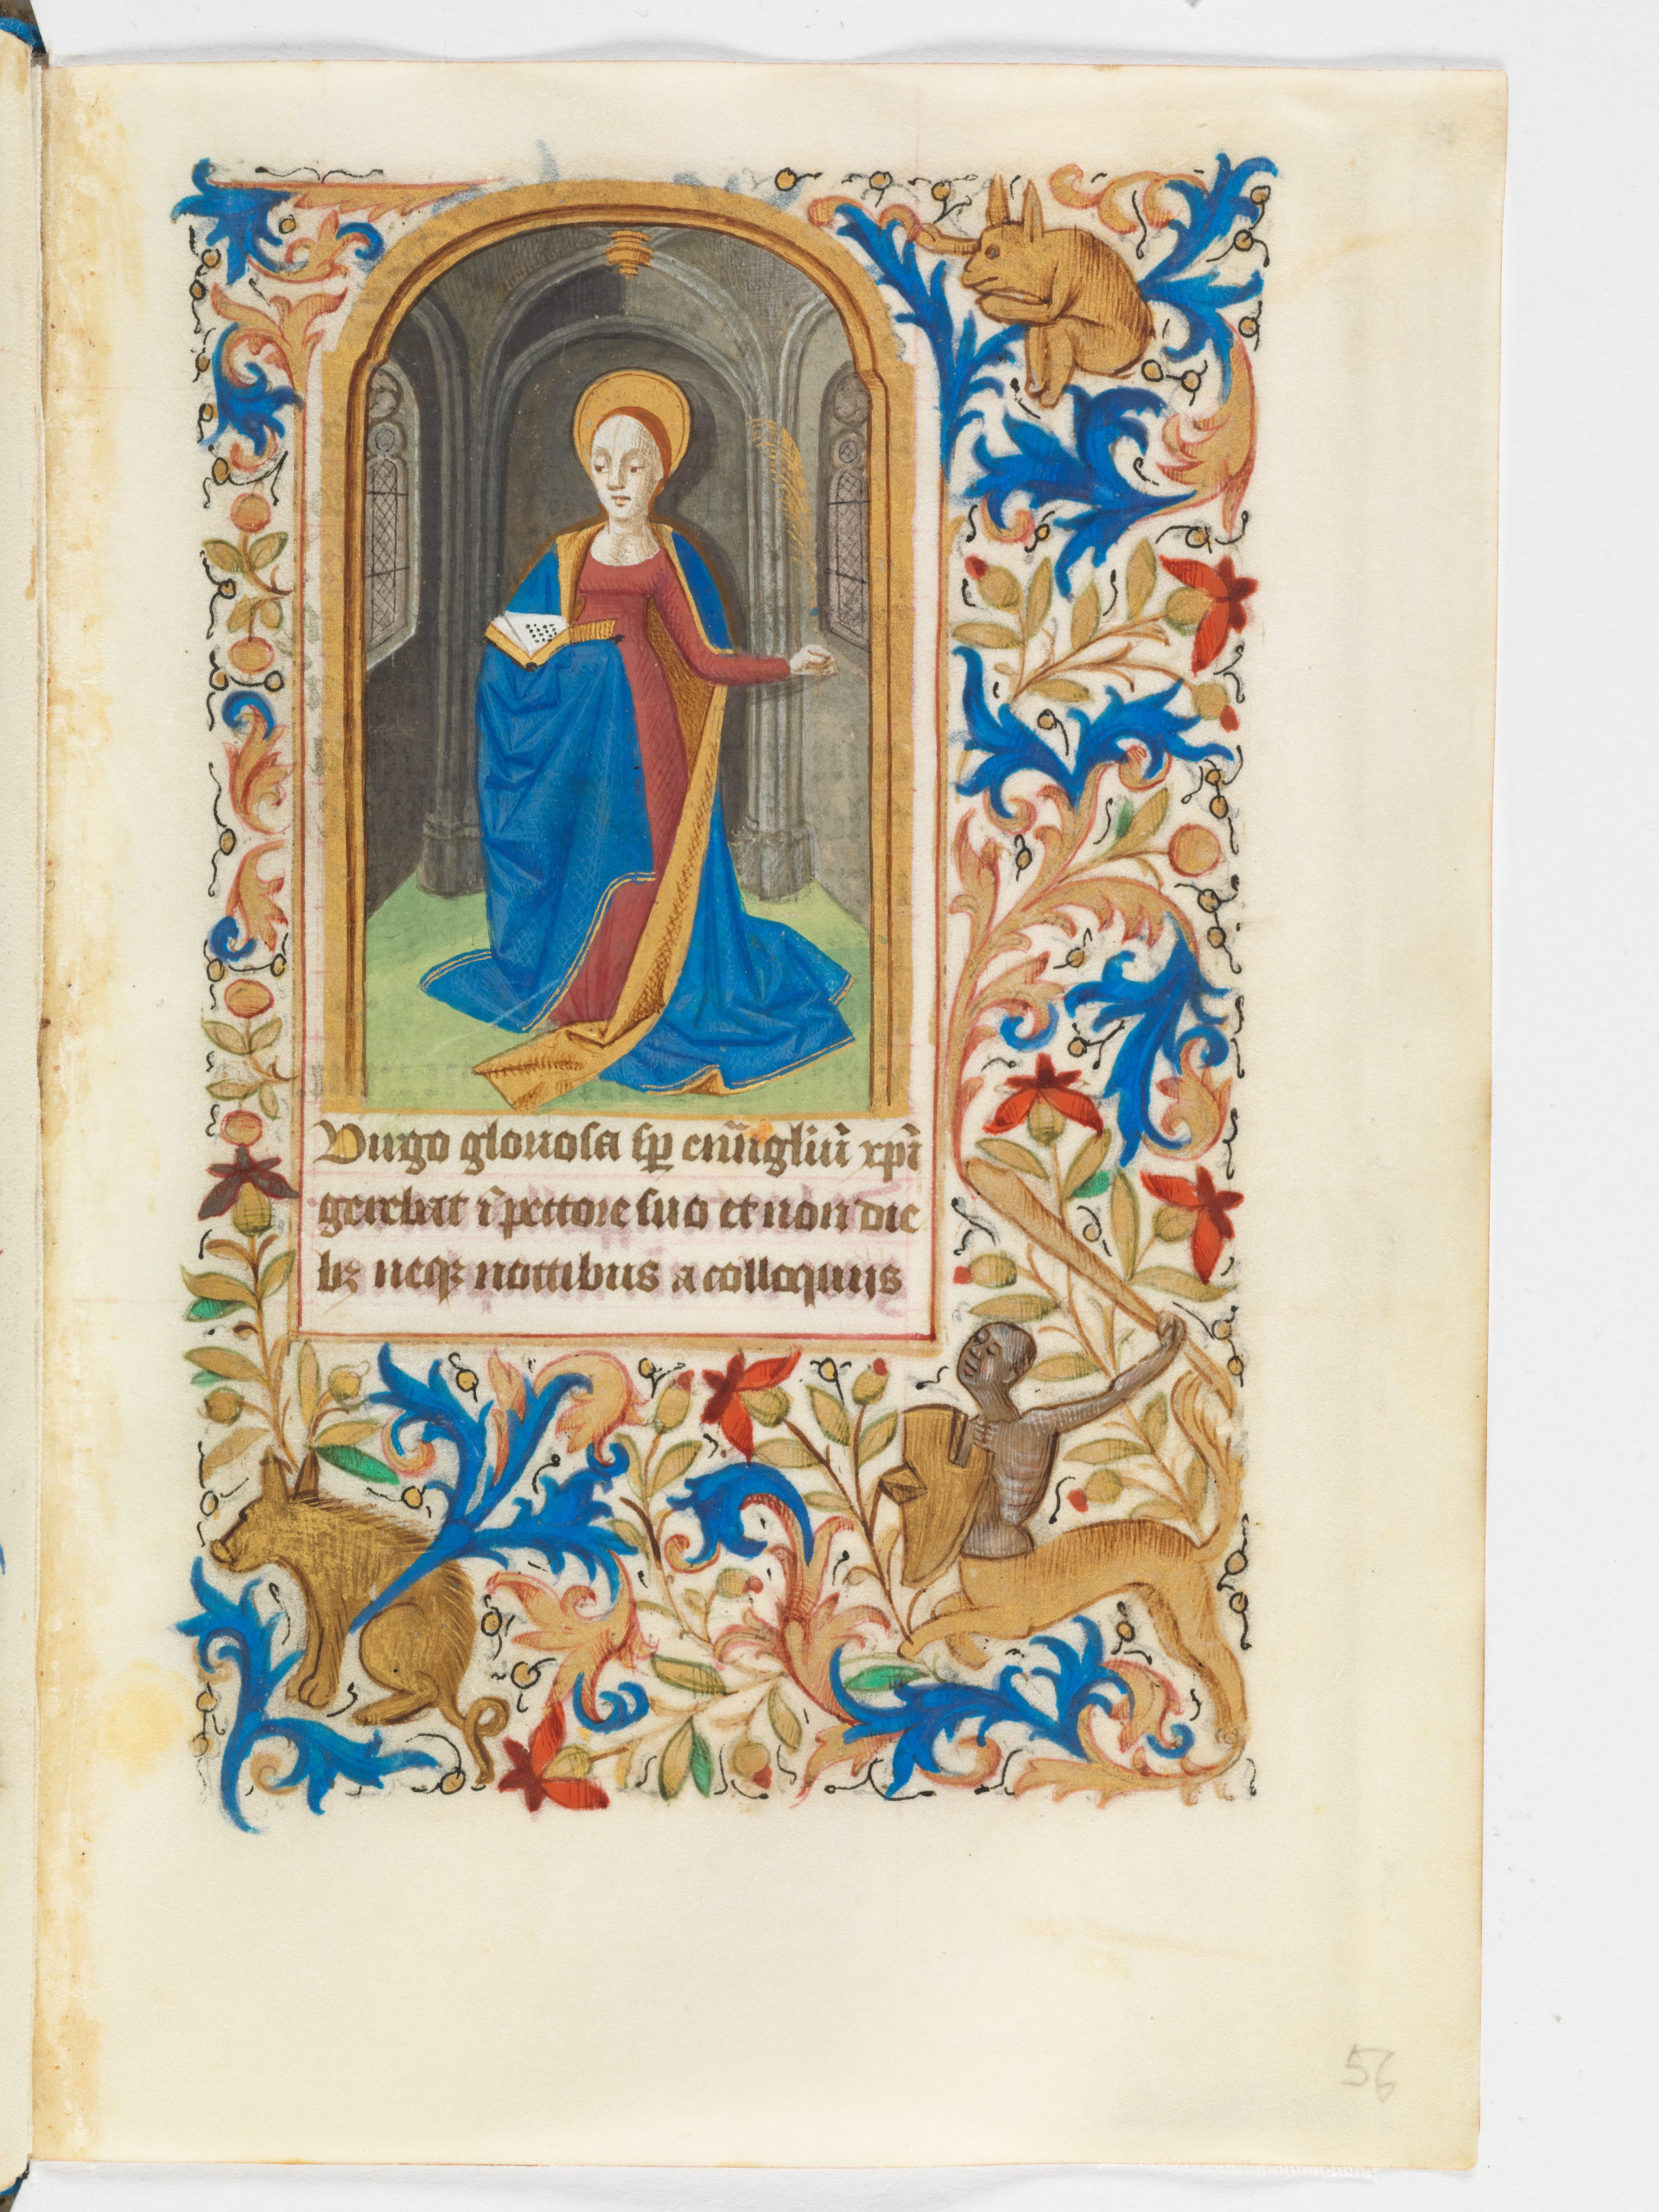 Virgo gloriosa sp̱ euu̅gliu̅ xp̅i
gerebat i̅ pectore suo et non die
bꝫ neqꝫ noctibus a colloquiis
56